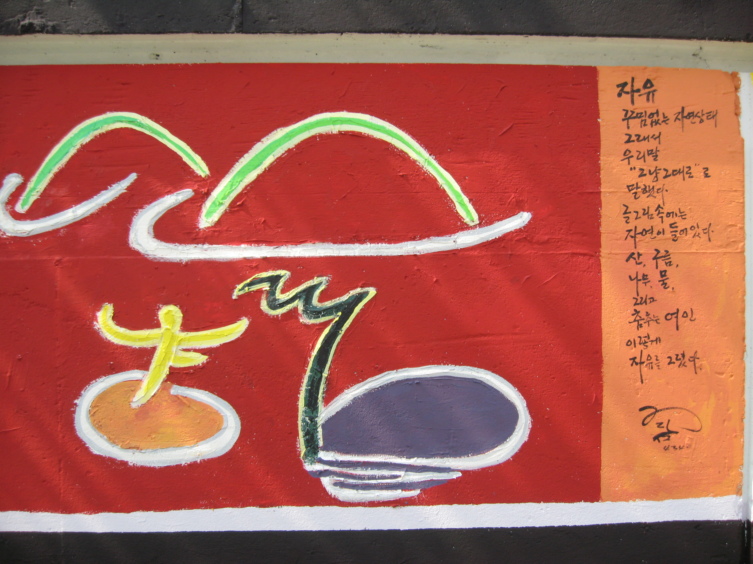 자유
꾸밈없는 자연상태
그래서
우리말
"그냥그대로"로
말했다.
글그림속에는
자연이 들어있다.
산, 구름,
나무, 물,
그리고
춤추는 여인
이렇게
자유를 그렸다.